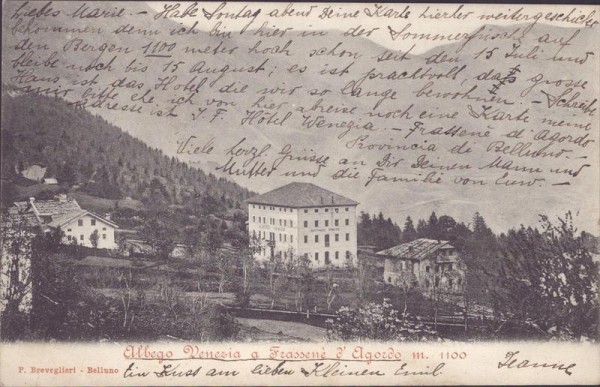 Liebes Marie - Habe Sontag abend Deine Karte hierher weitergeschickt
bekommen denn ich bin hier in der Sommerfrische auf
den Bergen 1100 meter hoch schon seit den 15 Juli und
bleibe noch bis 15 August; es ist prachtvoll, das grosse
Haus ist das Hotel die wir so lange bewohnen - Schreibe
mir bitte ehe ich von hier abreise noch eine Karte meine
Adresse ist J. F. Hôtel Wenezia - Frassenè d'Agordo
Provincia di Belluno -
Viele herzl. Grüsse an Dir Deinen Mann und
Mutter und die Familie von
Albego Venezia a Frassenè d'Agordo m. 1100
P. Breveglieri - Belluno
Ein Kuss am lieben Kleinen Emil. Jeanne